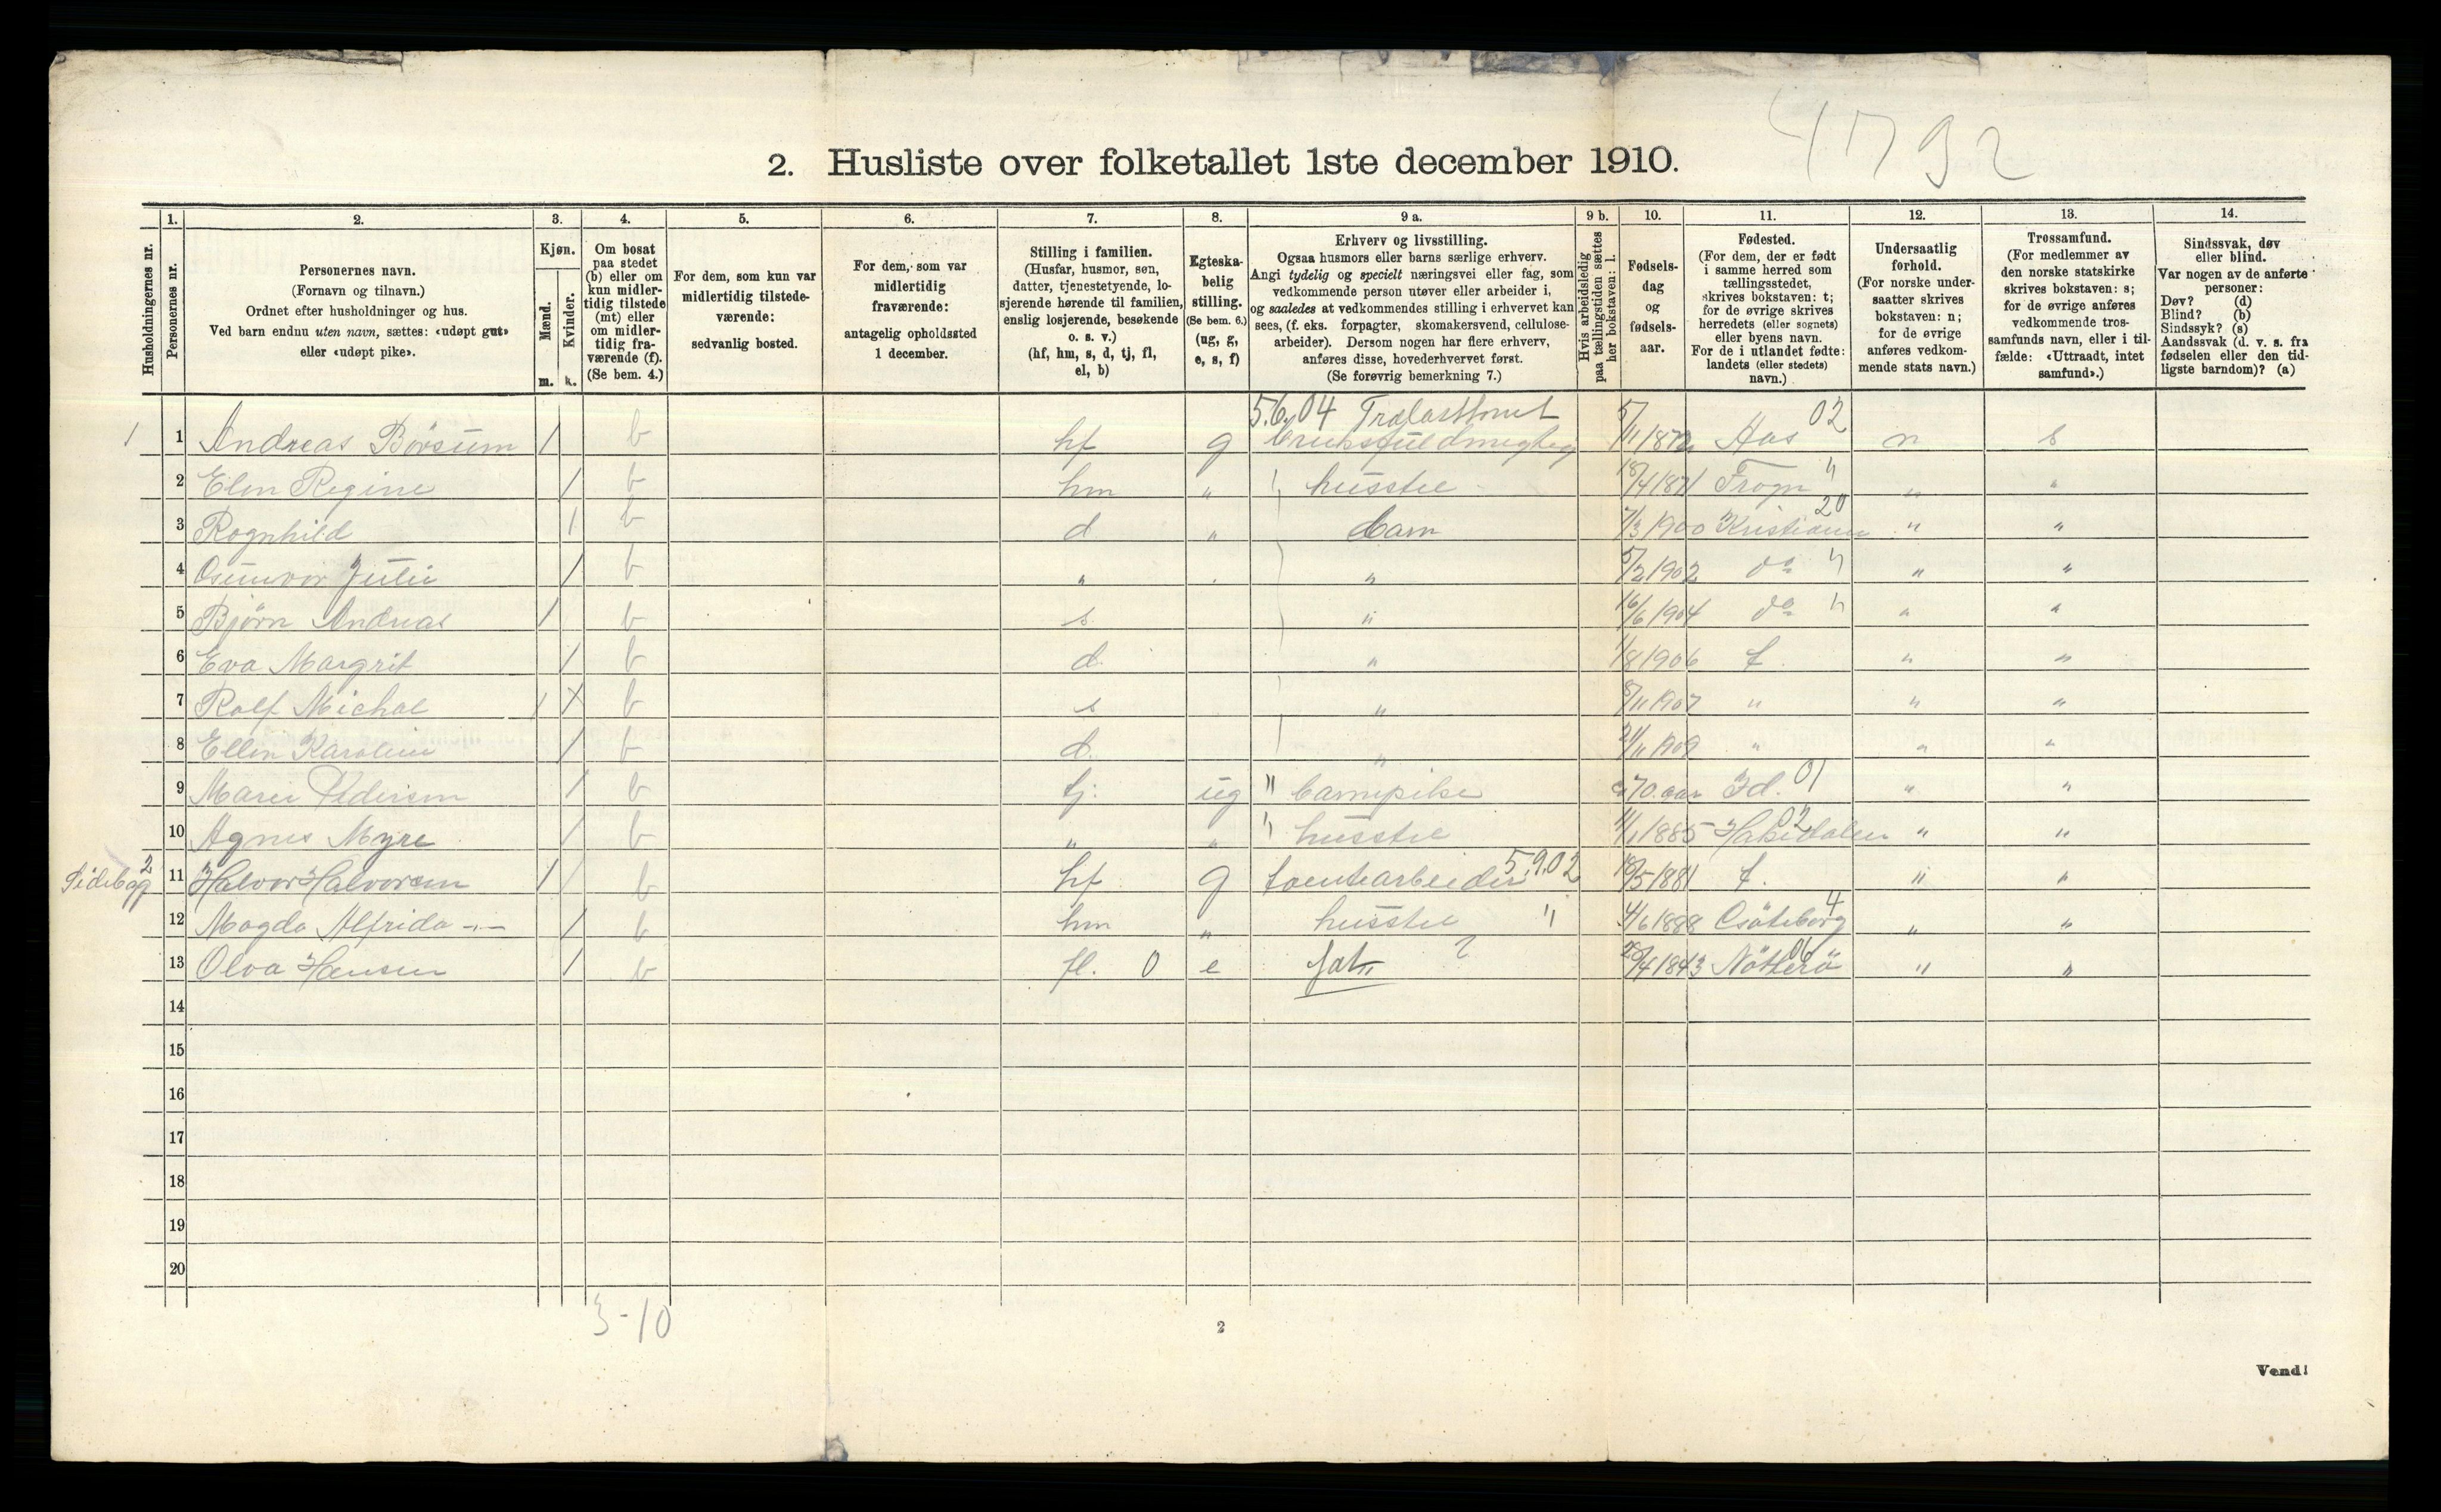 4792
2. Husliste over folketallet 1ste december 1910.
Husholdningernes nr.
1. Personernes nr.
2. Personernes navn.
(Fornavn og tilnavn.)
Ordnet efter husholdninger og hus.
Ved barn endnu uten navn, sættes: «udøpt gut»
eller «udøpt pike».
3. Kjøn.
Mænd. m.
Kvinder. k.
4. Om bosat
paa stedet
(b) eller om
kun midler-
tidig tilstede
(mt) eller
om midler-
tidig fra-
værende (f).
(Se bem. 4.)
5. For dem, som kun var
midlertidig tilstede-
værende:
sedvanlig bosted.
6. For dem, som var
midlertidig
fraværende:
antagelig opholdssted
1 december.
7. Stilling i familien.
(Husfar, husmor, søn,
datter, tjenestetyende, lo-
sjerende hørende til familien,
enslig losjerende, besøkende
o. s. v.)
(hf, hm, s, d, tj, fl,
el, b)
8. Egteska-
belig
stilling.
(Se bem. 6.)
(ug, g,
e, s, f)
9 a. Erhverv og livsstilling.
Ogsaa husmors eller barns særlige erhverv.
Angi tydelig og specielt næringsvei eller fag, som
vedkommende person utøver eller arbeider i,
og saaledes at vedkommendes stilling i erhvervet kan
sees, (f. eks. forpagter, skomakersvend, cellulose-
arbeider). Dersom nogen har flere erhverv,
anføres disse, hovederhvervet først.
(Se forøvrig bemerkning 7.)
9 b. Hvis arbeidsledig
paa tællingstiden sættes
her bokstaven: l.
10. Fødsels-
dag
og
fødsels-
aar.
11. Fødested.
(For dem, der er født
i samme herred som
tællingsstedet,
skrives bokstaven: t;
for de øvrige skrives
herredets (eller sognets)
eller byens navn.
For de i utlandet fødte:
landets (eller stedets)
navn.)
12. Undersaatlig
forhold.
(For norske under-
saatter skrives
bokstaven: n;
for de øvrige
anføres vedkom-
mende stats navn.)
13. Trossamfund.
(For medlemmer av
den norske statskirke
skrives bokstaven: s;
for de øvrige anføres
vedkommende tros-
samfunds navn, eller i til-
fælde: «Uttraadt, intet
samfund».)
14. Sindssvak, døv
eller blind.
Var nogen av de anførte
personer:
Døv? (d)
Blind? (b)
Sindssyk? (s)
Aandssvak (d. v. s. fra
fødselen eller den tid-
ligste barndom)? (a)
5.6.04 Trælasttomt 02
1 1 Andreas Børsum 1 b hf g 5/11 1872 Aas n s
2 Elen Regine 1 b hm " " husstel 18/4 1871 Frogn " " "
3 Ragnhild 1 b d " barn 7/3 1900 Kristiania 20 " "
4 1 b " " 5/2 1902 do " " "
5 Bjørn Andreas 1 b s " 16/6 1904 do " " "
6 Eva Margrit 1 b d. " 1/8 1906 t. " "
7 Rolf Michal 1 b s " 8/11 1907 " " "
8 Ellen Karoline 1 b d. " 21/11 1909 " " "
9 Marie Pedersen 1 b tj. ug " barnepike ca 70 aar Id. 01 " "
10 Agnes Myre 1 b " " " husstel 11/1 1885 Hakedalen 02 " "
Sidebyg 2 11 Halvor Halvorsen 1 b hf g tomtearbeider 5.9.02 18/5 1881 t. " "
12 Magda Alfrida -"- 1 b hm " husstel " 4/6 1888 Gøteborg 4 " "
13 Olva Hansen 1 b fl. 0 e fat. ? 26/4 1843 Nøtterø 06 " "
14
15
16
17
18
19
20
3-10
2
Vend!